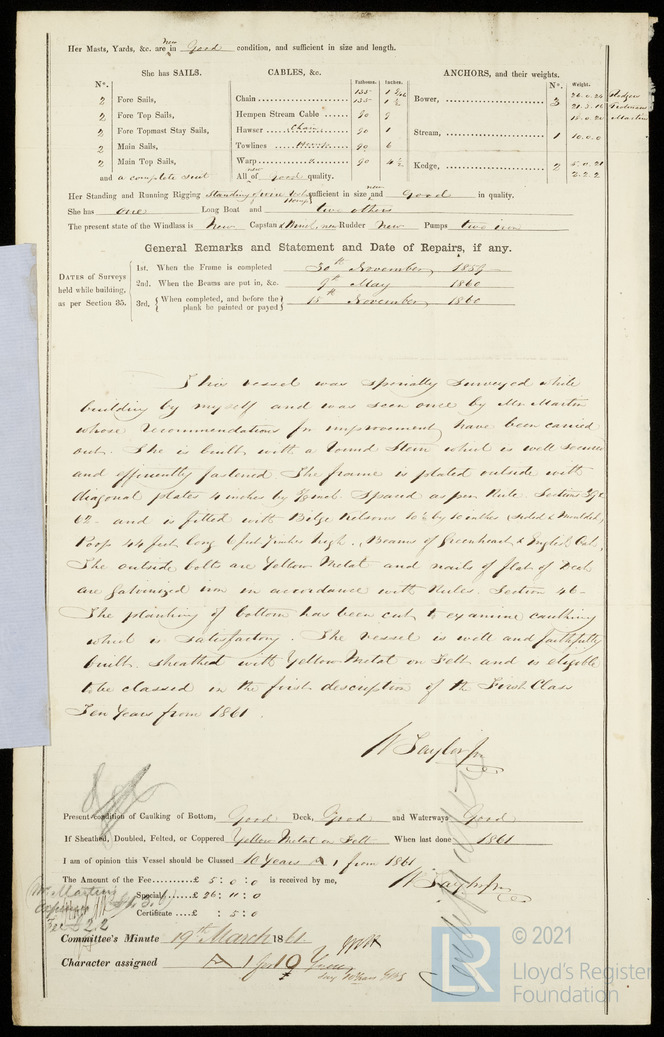 Her Masts, Yards, &c. are new in Good condition, and sufficient in size and length.
She has SAILS. CABLES, &c. Fathoms. Inches. ANCHORS, and their weights.
N°. N°. Weight.
2 Fore Sails, Chain 135 1
135 1 1/2
2 Fore Top Sails, Hempen Stream Cable 90 9
2 Fore Topmast Stay Sails, Hawser Chain 90 1
2 Main Sails, Towlines 90 6
2 Main Top Sails, Warp 90 4 1/2
and a complete suit All of new good quality.
Bower, 3
21.3.16
18.0.20 Martin
Stream, 1 10.0.0
Kedge, 2 5.0.21
2.2.2
Her Standing and Running Rigging Standing of wire sufficient in size and new good in quality.
She has one Long Boat and two others
The present state of the Windlass is New Capstan & Winch, new Rudder New Pumps two iron
General Remarks and Statement and Date of Repairs, if any.
DATES of Surveys held while building, as per Section 35.
1st. When the Frame is completed 30th November, 1859
2nd. When the Beams are put in, &c. 9th May 1860
3rd, {When completed, and before the plank be painted or payed} 18th November, 1860
This vessel was specially surveyed while
building by myself and was seen once by Mr Martin
whose recommendations for improvement have been carried
out. She is built with a round Stern which is well secured
and efficiently fastened. The frame is plated outside with
diagonal plates 4 inches by inch Spaced as per Rule. Section
62 and is fitted with Bilge Kelsons 10½ by 10 inches (sided & moulded)
Poop 44 feet long 6 feet inches high. Beams of Greenheart & English Oak,
The outside bolts are Yellow Metal and nails of flat of Deck
are Galvanized iron in accordance with Rules. Section 46-
The planking of bottom has been cut to examine caulking
which is satisfactory. The vessel is well and faithfully
built. Sheathed with Yellow Metal on Felt and is eligible
to be classed in the first description of the First Class
Ten Years from 1861.
W Taylor Jnr
Present condition of Caulking of Bottom, Good Deck, Good and Waterways Good
If Sheathed, Doubled, Felted, or Coppered Yellow Metal on Felt When last done 1861
I am of opinion this Vessel should be Classed 10 Years A 1 from 1861
The Amount of the Fee..........£ 5 : 0 : 0 is received by me, W Taylor Jnr
Special..£ 26 : 11 : 0
Certificate ...£ : 5 : 0
Mr Martin's
expenses
Fee £2.2
Committee's Minute 19th March 1861
Character assigned A 1 for 10 Years
© 2021
LR
Lloyd's Register
Foundation